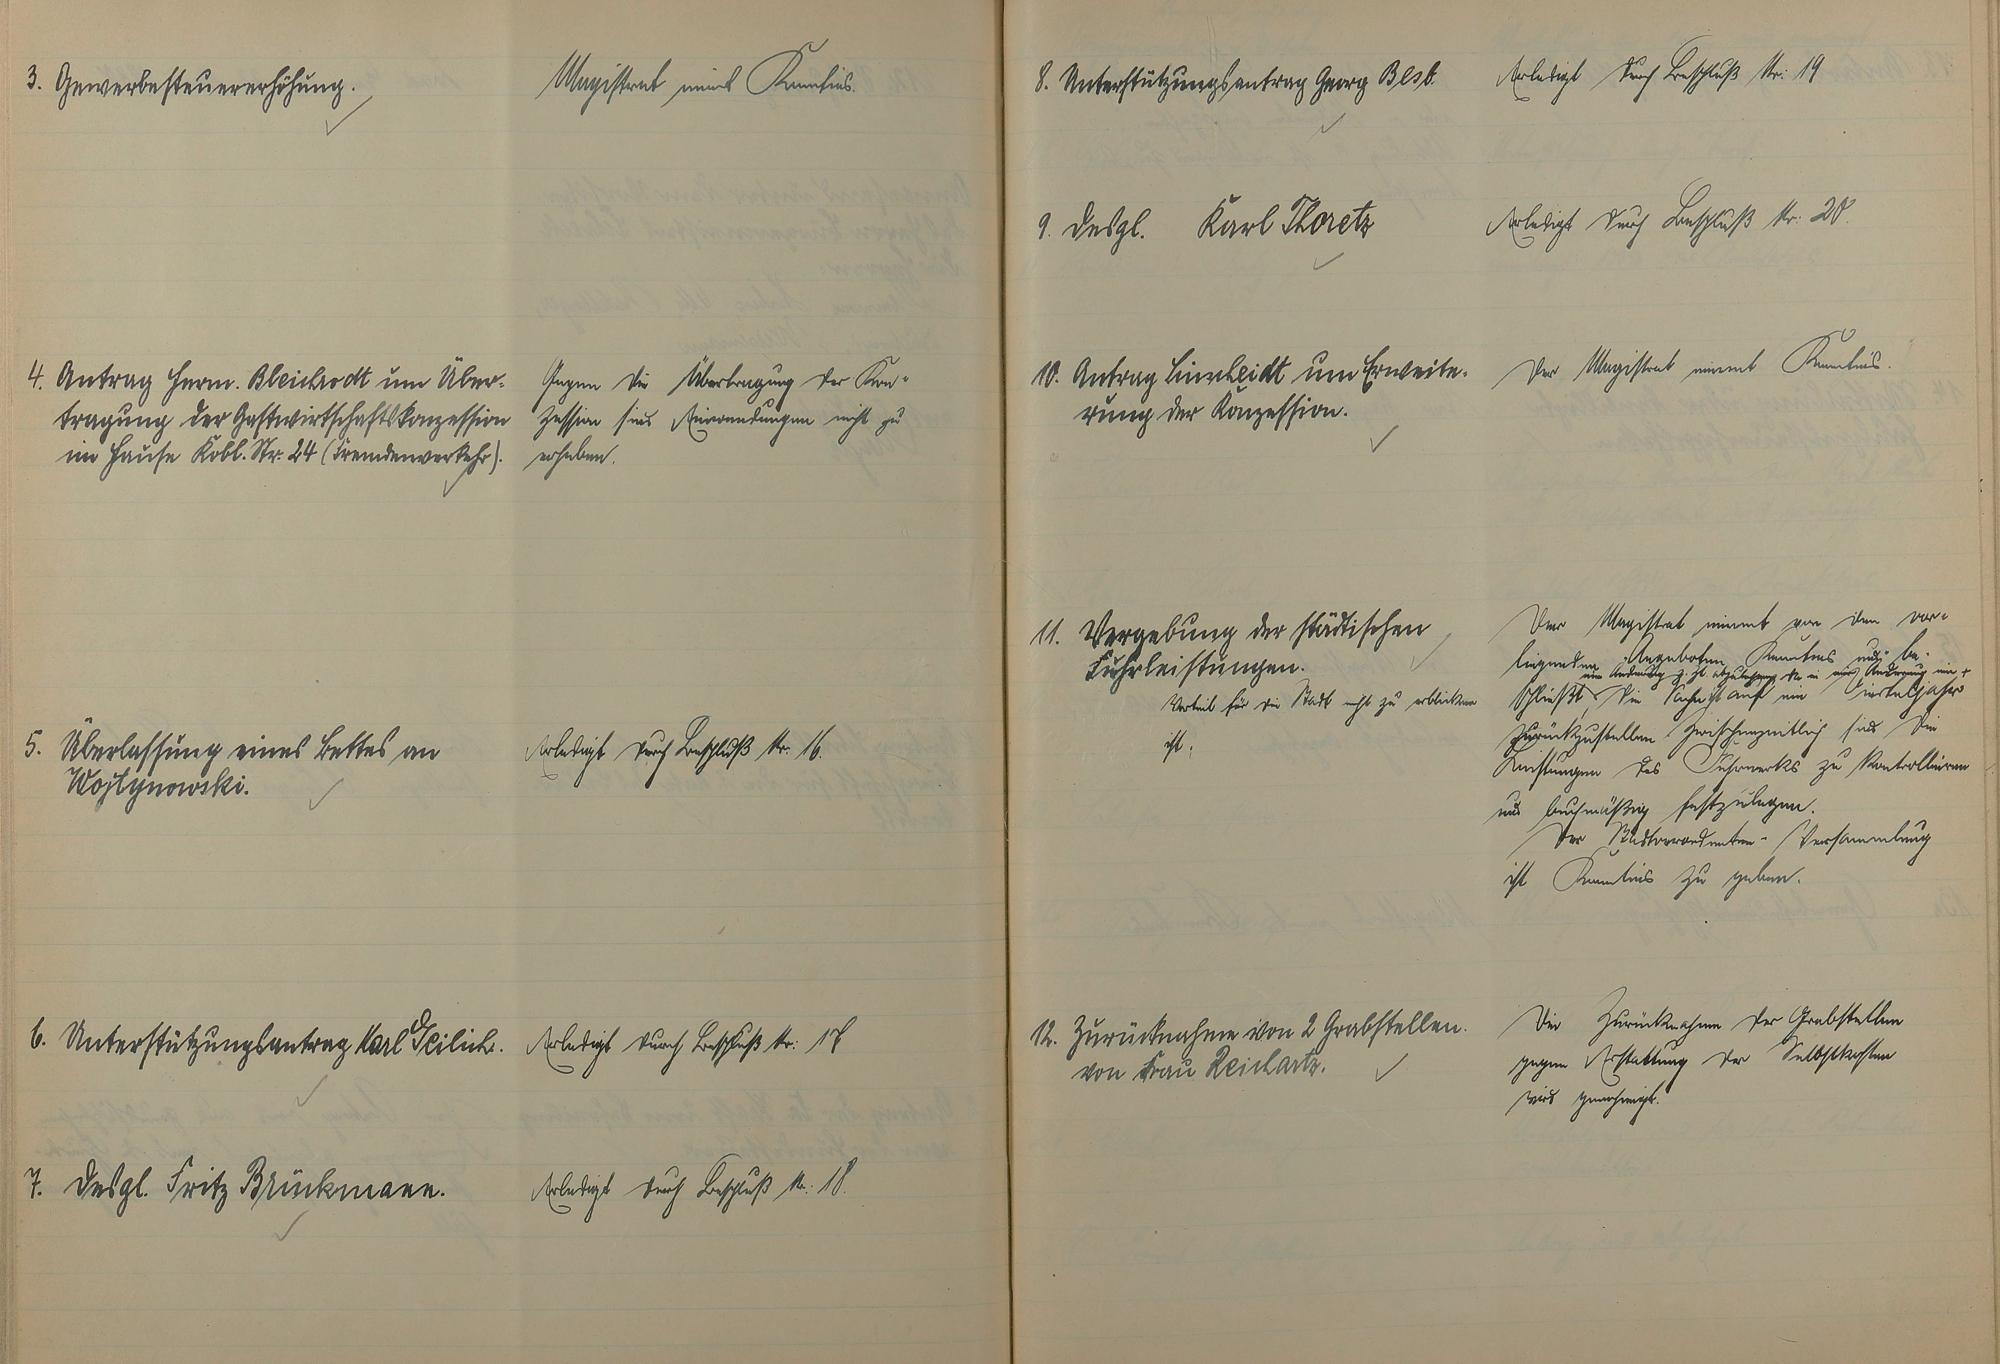 3. Gewerbesteuererhöhung.
Magistrat nimmt Kenntnis.
4. Antrag Herm. Bleichrodt um Über-
tragung der Gastwirtschaftskonzession
im Hause Kobl. Str. 24 (Fremdenverkehr).
Gegen die Übertragung der Kon-
zession sind Einwendungen nicht zu
erheben.
5. Überlassung eines Bettes an
Wojtynowski.
Erledigt durch Beschluß Nr. 16.
6. Unterstützungsantrag Karl
Erledigt durch Beschluß Nr: 17
7. Desgl. Fritz Brückmann.
Erledigt durch Beschluß Nr. 18.
8. Unterstützungsantrag Georg Best.
Erledigt durch Beschluß Nr: 19
9. Desgl. Karl Thoretz
Erledigt durch Beschluß Nr: 20.
10. Antrag um Erweite-
rung der Konzession.
Der Magistrat nimmt Kenntnis.
11. Vergebung der städtischen
Fuhrleistungen.
Vorteil für die Stadt nicht zu erblicken
ist;
Der Magistrat nimmt von den vor-
liegenden Angeboten Kenntnis und be-
eine Änderung z. Zt. abzulehnen da in der Änderung ein +
schließt, die Sache ist auf ein Vierteljahr
zurückzustellen. Zwischenzeitlich sind die
Leistungen des Fuhrwerks zu kontrollieren
und buchmäßig festzulegen.
Der Stadtverordneten-Versammlung
ist Kenntnis zu geben.
12. Zurücknahme von 2 Grabstellen.
von Frau Reichartz.
Die Zurücknahme der Grabstellen
gegen Erstattung der Selbstkosten
wird genehmigt.